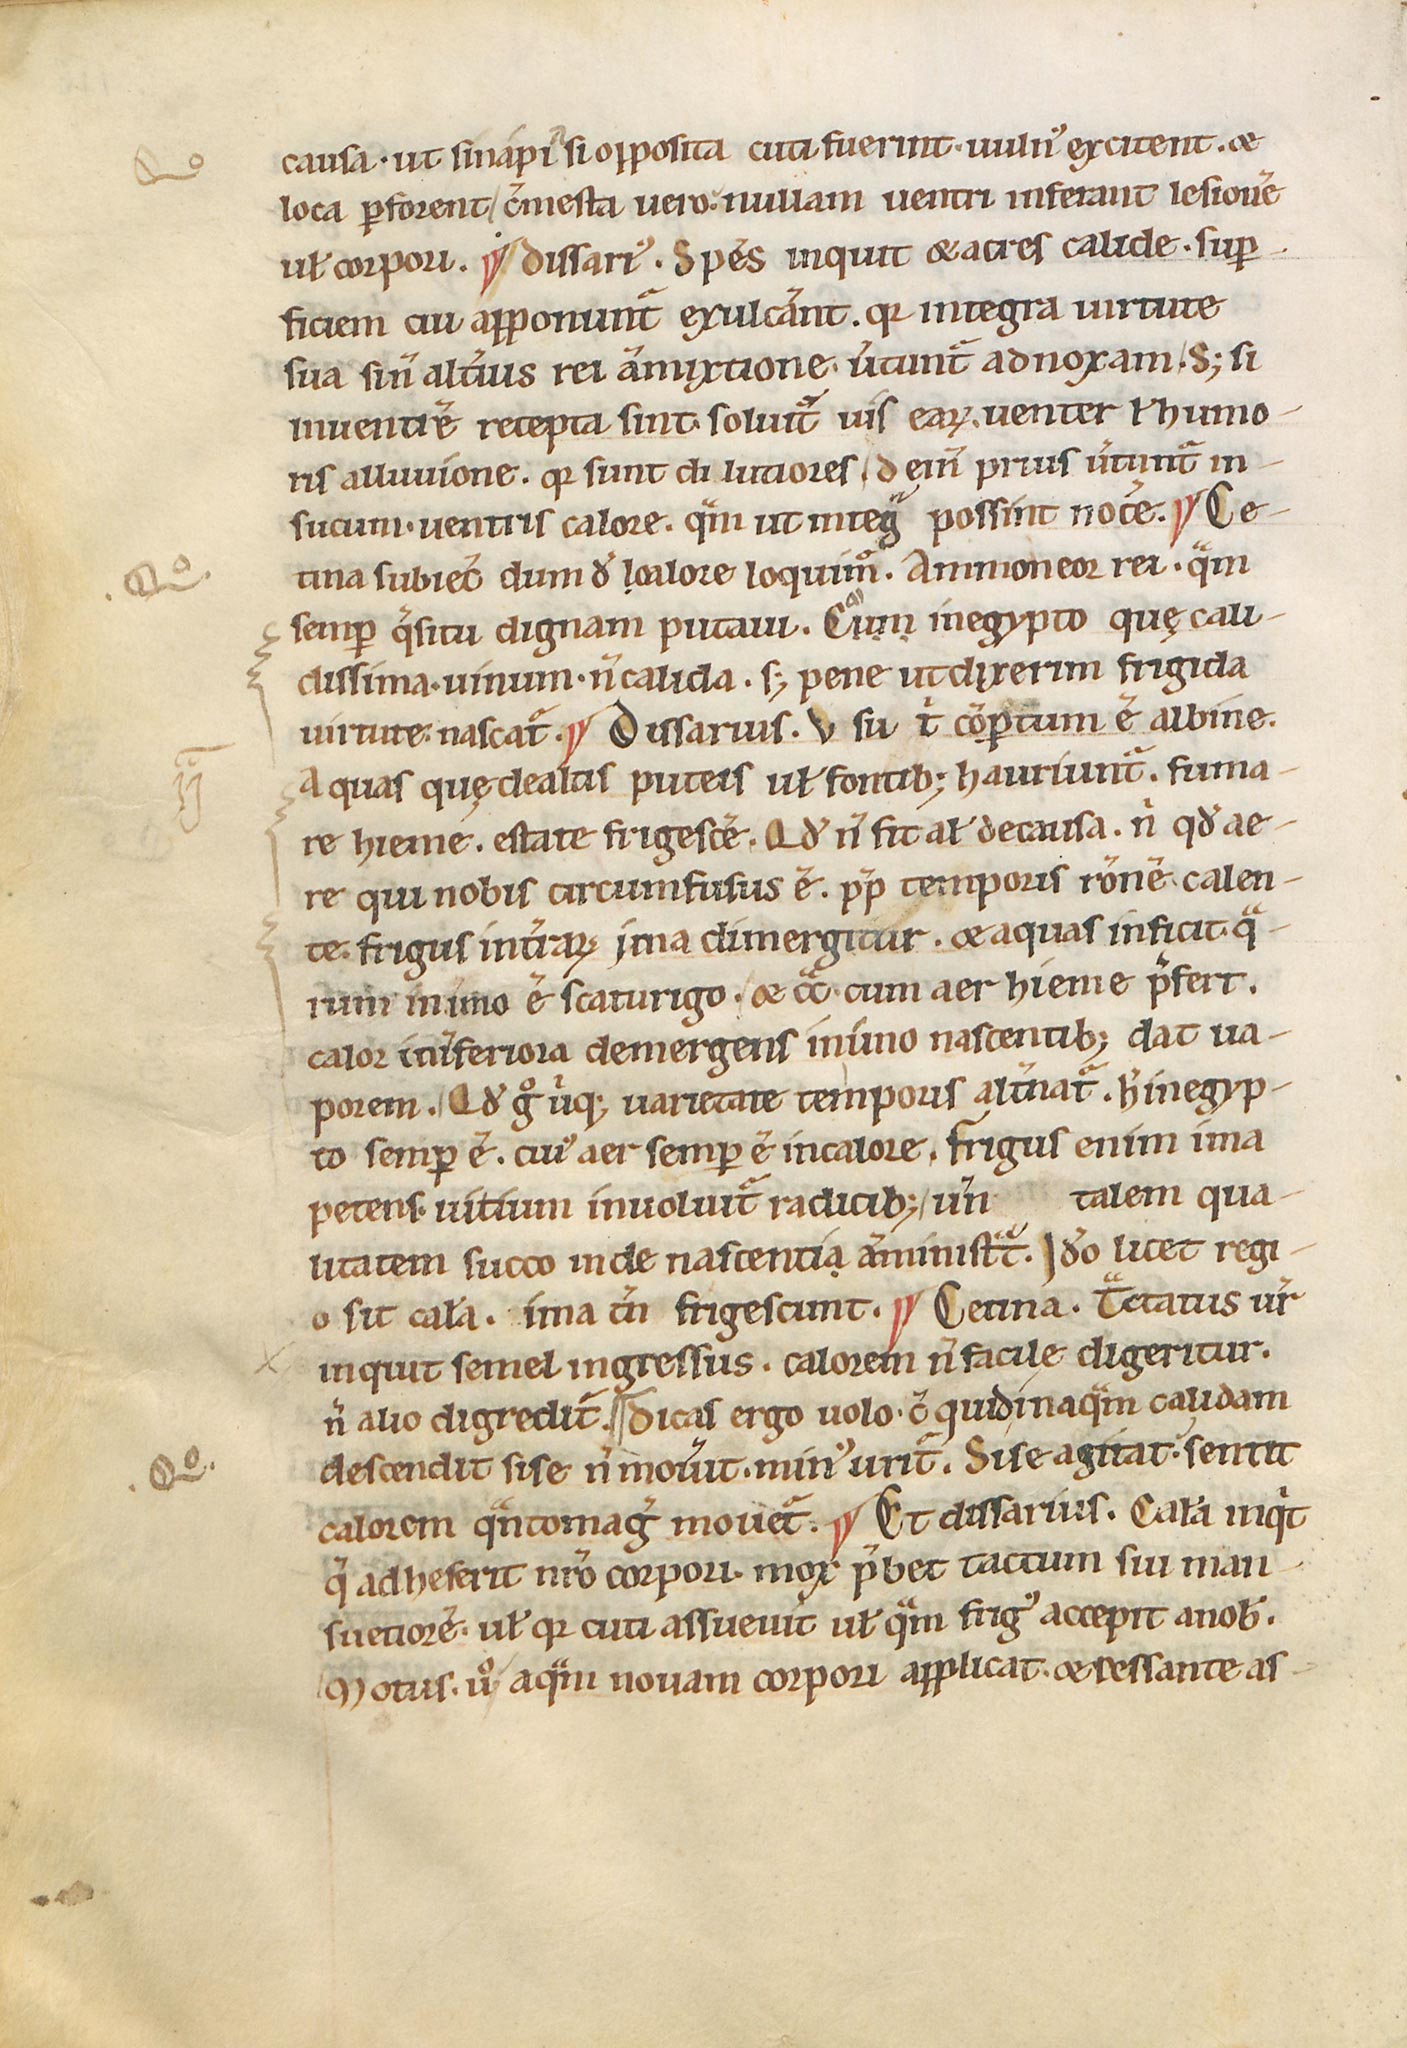 Qo
causa · ut sinapi si opposita cuti fuerint · uuln᷒ excitent · &
loca ꝑforent / c̄mesta uero · nullam uentri inferant lesionē
ul̵ corpori. dissari᷒. Spēs inquit & acres calide · suꝑ-
ficiem cui apponunt᷑ exulcānt. qꝛ integra uirtute
sua sin̄ alt̄ius rei āmixtione · ūtunt᷑ ad noxam / S; si
in uentrē recepta sint · soluit᷑ uis eaꝝ. uenter ł humo-
ris alluuione. qꝛ sunt di lutiores / d ein̄ prius ūtunt᷑ in-
sucum · uentris calore. qͣm ut integͣ possint nocē. Ce-
Qo.
tina subiec̄ dum đ calore loquim᷒. Ammoneor rei · qͣm
semꝑ q̄situ dignam putaui. Cum in egypto quę cali-
dissima · uinum · n̄ calida. s; pene ut dixerim frigida
uirtute · nascat᷑. Dissarius. V su t̄ cōꝑtum ē albine.
A quas quę de altis puteis ul̵ fontib; hauriunt᷑. fuma-
re hieme. estate frigescē. Qđ n̄ fit al̵ de causa. n̄ qđ ae-
re qui nobis circumfusus ē. ꝓp̄ temporis rōnē calen-
te · frigus int̄raꝝ ima dimergitur. & aquas inficit qͣ-
rum in imo ē scaturigo. & cͣ cum aer hieme p̄fert.
calor in īferiora demergens in imo nascentib; dat ua-
porem. Qđ gͦ ūq; uarietate temporis alt̄nat᷑. h̄ in egyp-
to semꝑ ē. cui᷒ aer semꝑ ē in calore. frigus enim ima
petens · uitium inuoluit᷑ radicib; / ūn talem qua-
litatem succo inde nascentia āministͣt. Iđo licet regi-
o sit cal̵a. ima tn̄ frigescunt. Cetina. Tͣctatus ūr
inquit semel ingressus. calorem n̄ facile digeritur.
n̄ alio digredit᷑. Dicas ergo uolo · c̄ qui d in aqͣm calidam
.Qo.
descendit si se n̄ mouīt · min᷒ urit᷑. Si se agitat · sentit
calorem qͣnto maḡ mouet᷑. Et dissarius. Cal̵a inqͥt
q̄ adheserit nr̄o corpori · mox p̄bet tactum sui man-
suetiorē · ul̵ qꝛ cuti assueuit ul̵ qͣm frig᷒ accepit a nob̄.
Motus · uͦ aqͣm nouam corpori applicat · & cessante as-